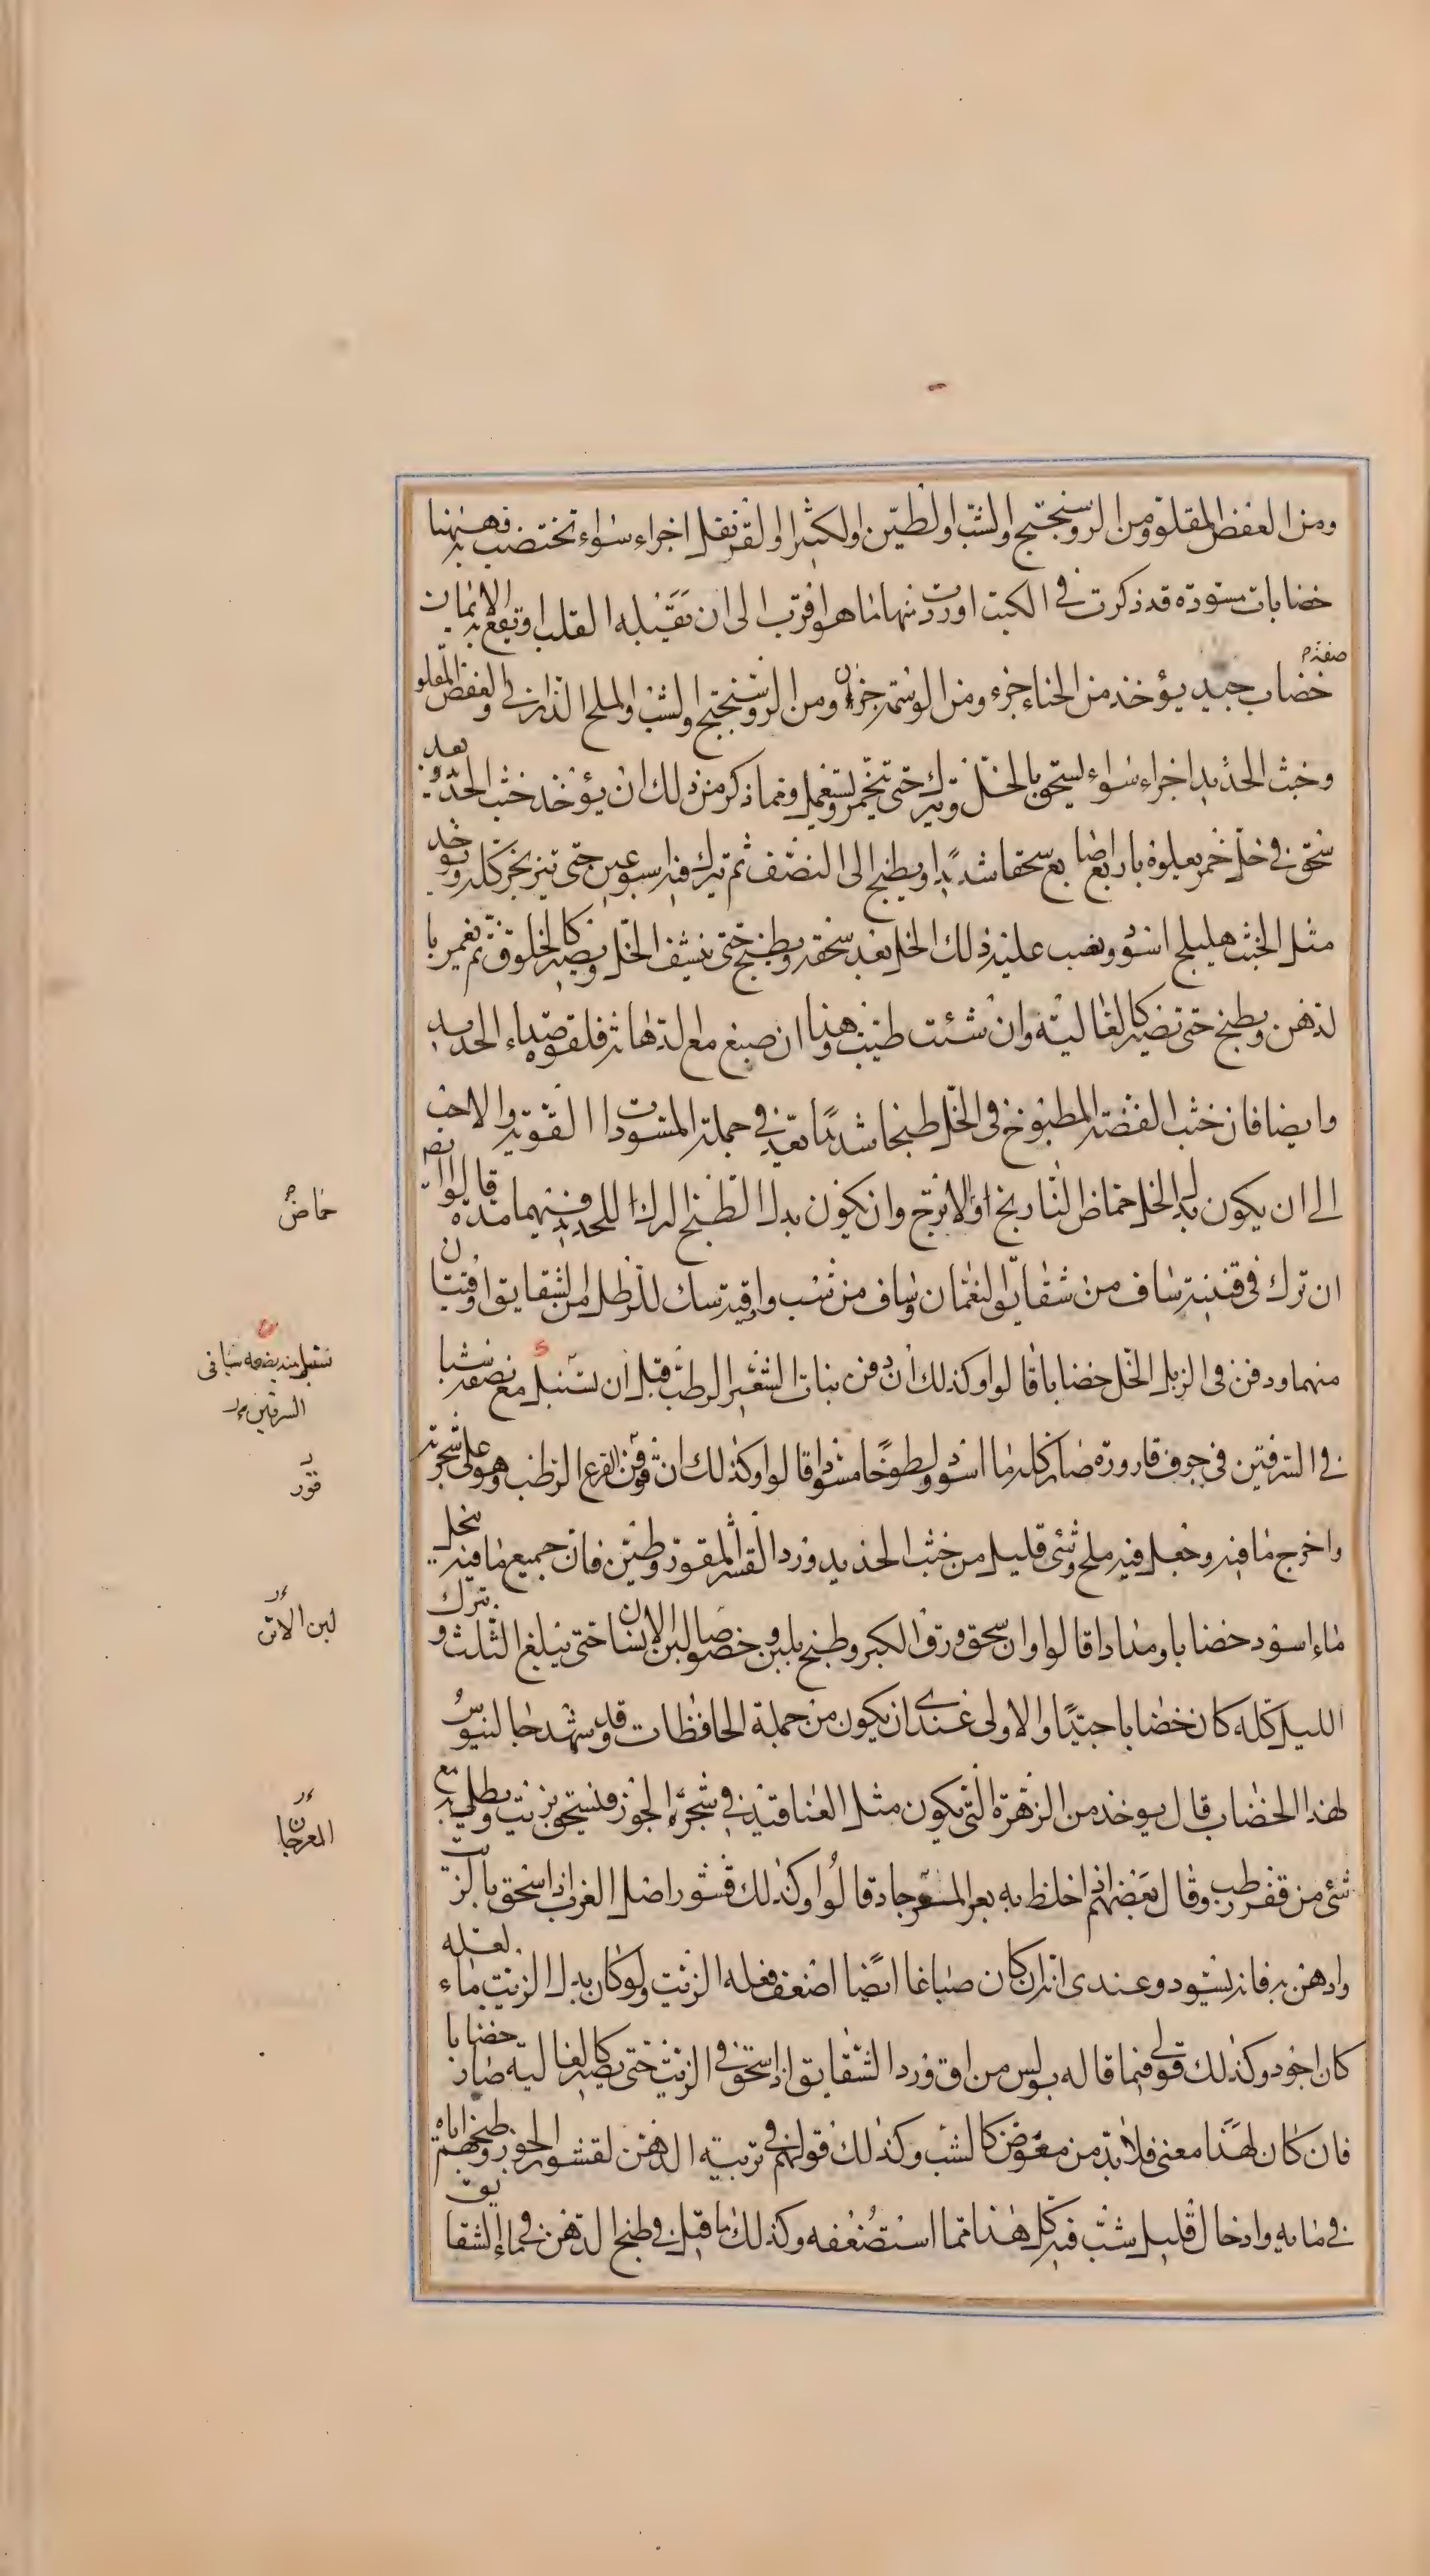 ومن العفص المقلو ومن الروسختج والشب والطين والكثيرا والقرنفل اجزاء سواء تختضب به فهيهنا
خضابات مسودة قد ذكرت في الكتب اوردت منها ما هو اقرب الى ان تقبله القلب او تقع به الايمان
صفة م
خضاب جيد يؤخذ من الحناء جزء ومن الوسمة جزءان ومن الروسختج والشب والملح الذراني والعفص المقلو
وخبث الحديد اجزاء سواء يسحق بالخل وترك حتى تخمر ويستعمل ومما ذكر من ذلك ان يؤخذ خبث الحديد و
سحق في خل خمر يعلوه باربع اصابع سحقا شديدا ويطبخ الى النصف ثم ترك فيه اسبوعين حتى تنزنجر كله ويوخذ
مثل الخبث هليلج اسود ويصب عليه ذلك الخل بعد سحقه ويطبخ حتى ينشف الخل ويصير كالخلوق ثم يغمر با
لدهن ويطبخ حتى تصير كالغالية وان شئت طيب وهذا ان صبغ مع الدهانة فلقوة صداء الحديد
وايضا فان خبث الفضة المطبوخ في الخل طبخا شديدا يعد في جملة المسودات القوية والاحب
الى ان يكون بدل الخل حماض النارنج او الاترج وان يكون بدل الطبخ الترك للحديد فيهما مدة قالوا ايضا
ان ترك في قنينة ساف من شقايق النعمان وساف من شب واوقية سك للرطل من الشقايق اوقيتان
منهما ودفن في الزبل الخل خضابا قالوا وكذلك ان دفن نبات الشعير الرطب قبل ان تسنبل مع نصفه شبا
في السرقين في جوف قارورة صار كله ماء اسود ولطوخا مسودا قالوا وكذلك ان قور القرع الرطب وهو على شجرته
واخرج ما فيه وجعل فيه ملح وشئ قليل من خبث الحديد ورد القشر المقور وطين فان جميع ما فيه ينحل
ماء اسود خضابا ومدادا قالوا وان سحق ورق الكبر وطبخ بلبن وخصوصا لبن الانسان حتى يبلغ الثلث وترك
الليل كله كان خضابا جيدا والاولى عندى ان يكون من جملة الحافظات وقد شهد جالينوس
لهذا الخضاب قال يوخذ من الزهرة التى تكون مثل العناقيد في شجرة الجوز فتسحق بزيت ويطلى به مع
شئ من قفر رطب وقال بعضهم اذا خلط به بعر المعرجان قالوا وكذلك قشور اصل الغرب اذا سحق بالزيت
وادهن به فانه يسود وعندى انه ان كان صباغا ايضا اضعف فعله الزيت ولو كان بدل الزيت ماء لعله
كان اجود وكذلك قولى فيما قاله بولس من ان ورد الشقايق اذا سحق في الزيت حتى يصير كالغالية صار خضابا
فان كان لهذا معنى فلا بد من مغوض كالشب وكذلك قولهم في تربية الدهن لقشور الجوز وطبخهم اياه
في مايه وادخال قليل شب فيه كل هذا مما استضعفه وكذلك ما قيل في طبخ الدهن في ماء الشقايق
حماض
تسنبل
السرقين
قور
لبن الاتن
المعرجان